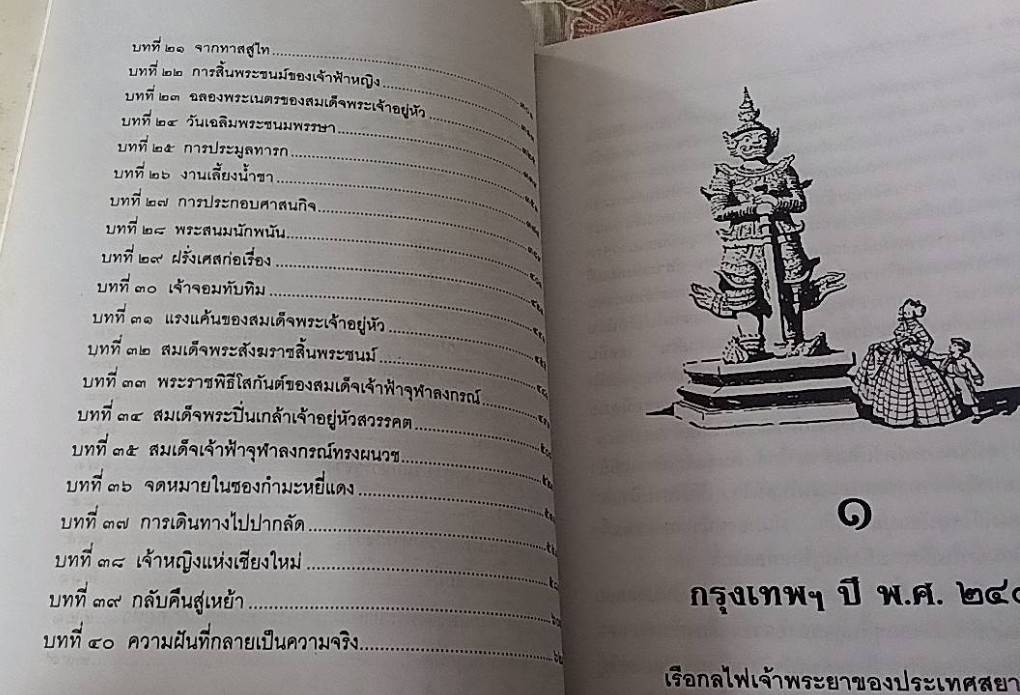 บทที่ ๒๑ จากทาสสู่ไท
บทที่ ๒๒ การสิ้นพระชนม์ของเจ้าฟ้าหญิง
บทที่ ๒๓ ฉลองพระเนตรของสมเด็จพระเจ้าอยู่หัว
บทที่ ๒๔ วันเฉลิมพระชนมพรรษา
บทที่ ๒๕ การประมูลทารก
บทที่ ๒๖ งานเลี้ยงน้ำชา
บทที่ ๒๗ การประกอบศาสนกิจ
บทที่ ๒๘ พระสนมนักพนัน
บทที่ ๒๙ ฝรั่งเศสก่อเรื่อง
บทที่ ๓๐ เจ้าจอมทับทิม
บทที่ ๓๑ แรงแค้นของสมเด็จพระเจ้าอยู่หัว
บทที่ ๓๒ สมเด็จพระสังฆราชสิ้นพระชนม์
บทที่ ๓๓ พระราชพิธีโสกันต์ของสมเด็จเจ้าฟ้าจุฬาลงกรณ์
บทที่ ๓๔ สมเด็จพระปิ่นเกล้าเจ้าอยู่หัวสวรรคต
บทที่ ๓๕ สมเด็จเจ้าฟ้าจุฬาลงกรณ์ทรงผนวช
บทที่ ๓๖ จดหมายในซองกำมะหยี่แดง
บทที่ ๓๗ การเดินทางไปปากลัด
บทที่ ๓๘ เจ้าหญิงแห่งเชียงใหม่
บทที่ ๓๙ กลับคืนสู่เหย้า
บทที่ ๔๐ ความฝันที่กลายเป็นความจริง
๑
กรุงเทพฯ ปี พ.ศ.
เรือกลไฟเจ้าพระยาของประเทศสยา